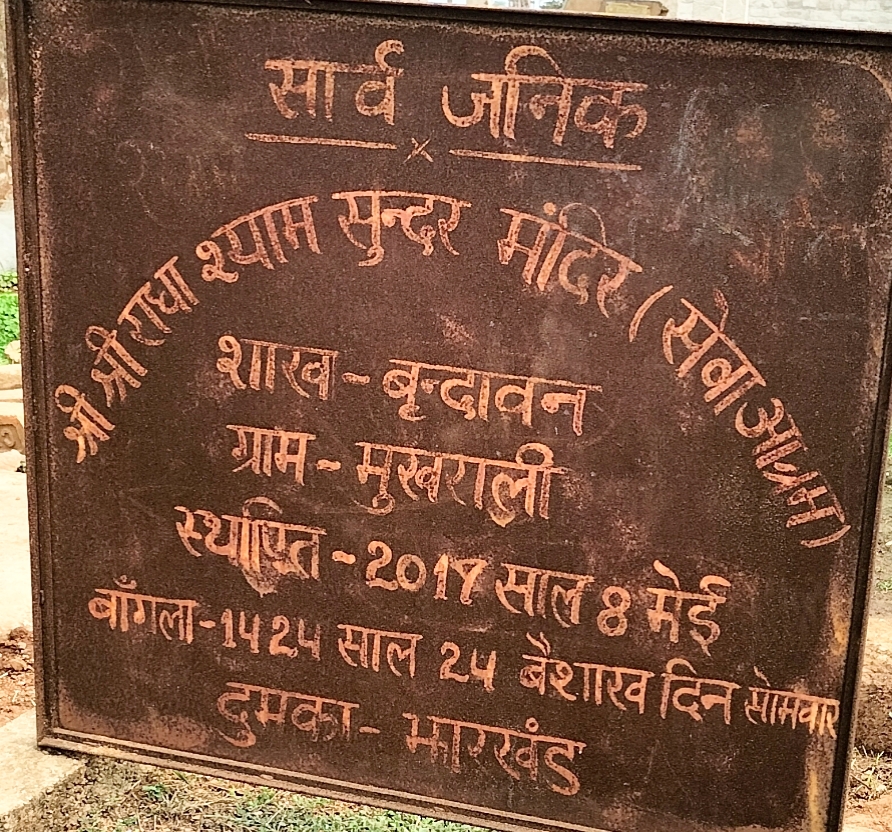 सार्व जनिक
x
श्री श्री राधा श्याम सुन्दर मंदिर (सेवा आश्रम)
शाख - बृन्दावन
ग्राम - मुखराली
स्थापित - 2017 साल 8 मेई
बाँगला - 1424 साल 24 बैशाख दिन सोमवार
दुमका - झारखंड